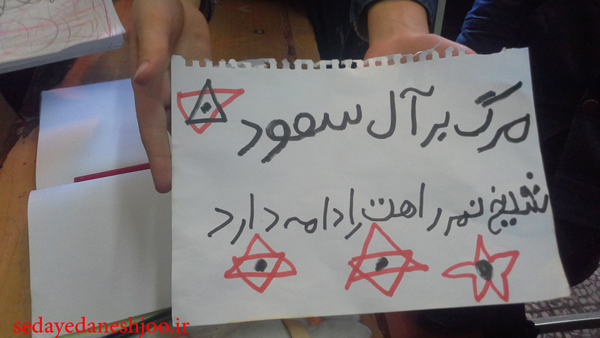 مرگ بر آل سعود
شیخ نمر راهت ادامه دارد
sedayedaneshjoo.ir